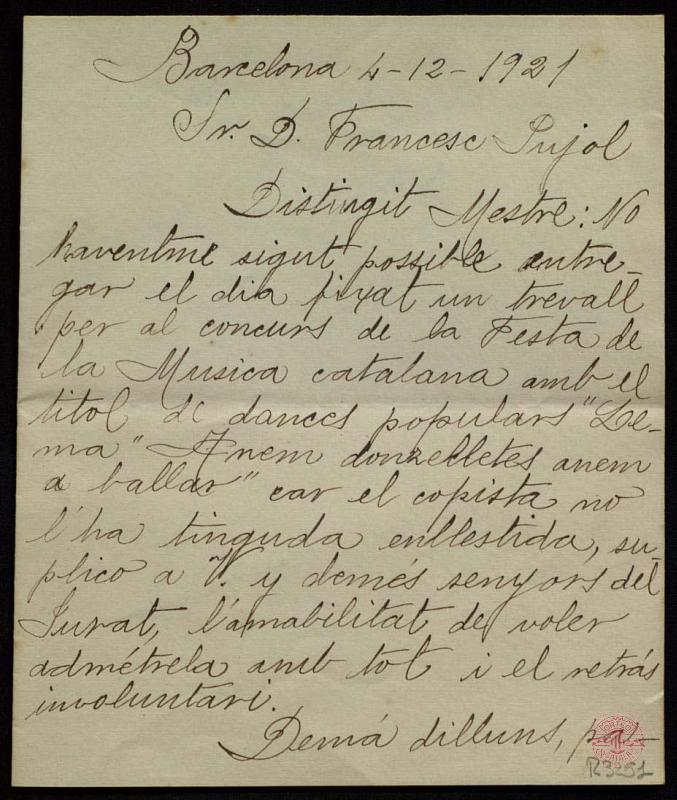 Barcelona 4-12-1921
Sr. D. Francesc Pujol
Distingit Mestre: No
haventme sigut possible entre-
gar el dia fixat un trevall
per al concurs de la Festa de
la Musica catalana amb el
titol de dances populars "Le-
ma" Anem donzelletes anem
a ballar" car el copista no
l'ha tinguda enllestida, su-
plico a V. y demés senyors del
Jurat, l'amabilitat de voler
admétrela amb tot i el retrás
involuntari.
Demá dilluns,
R3251